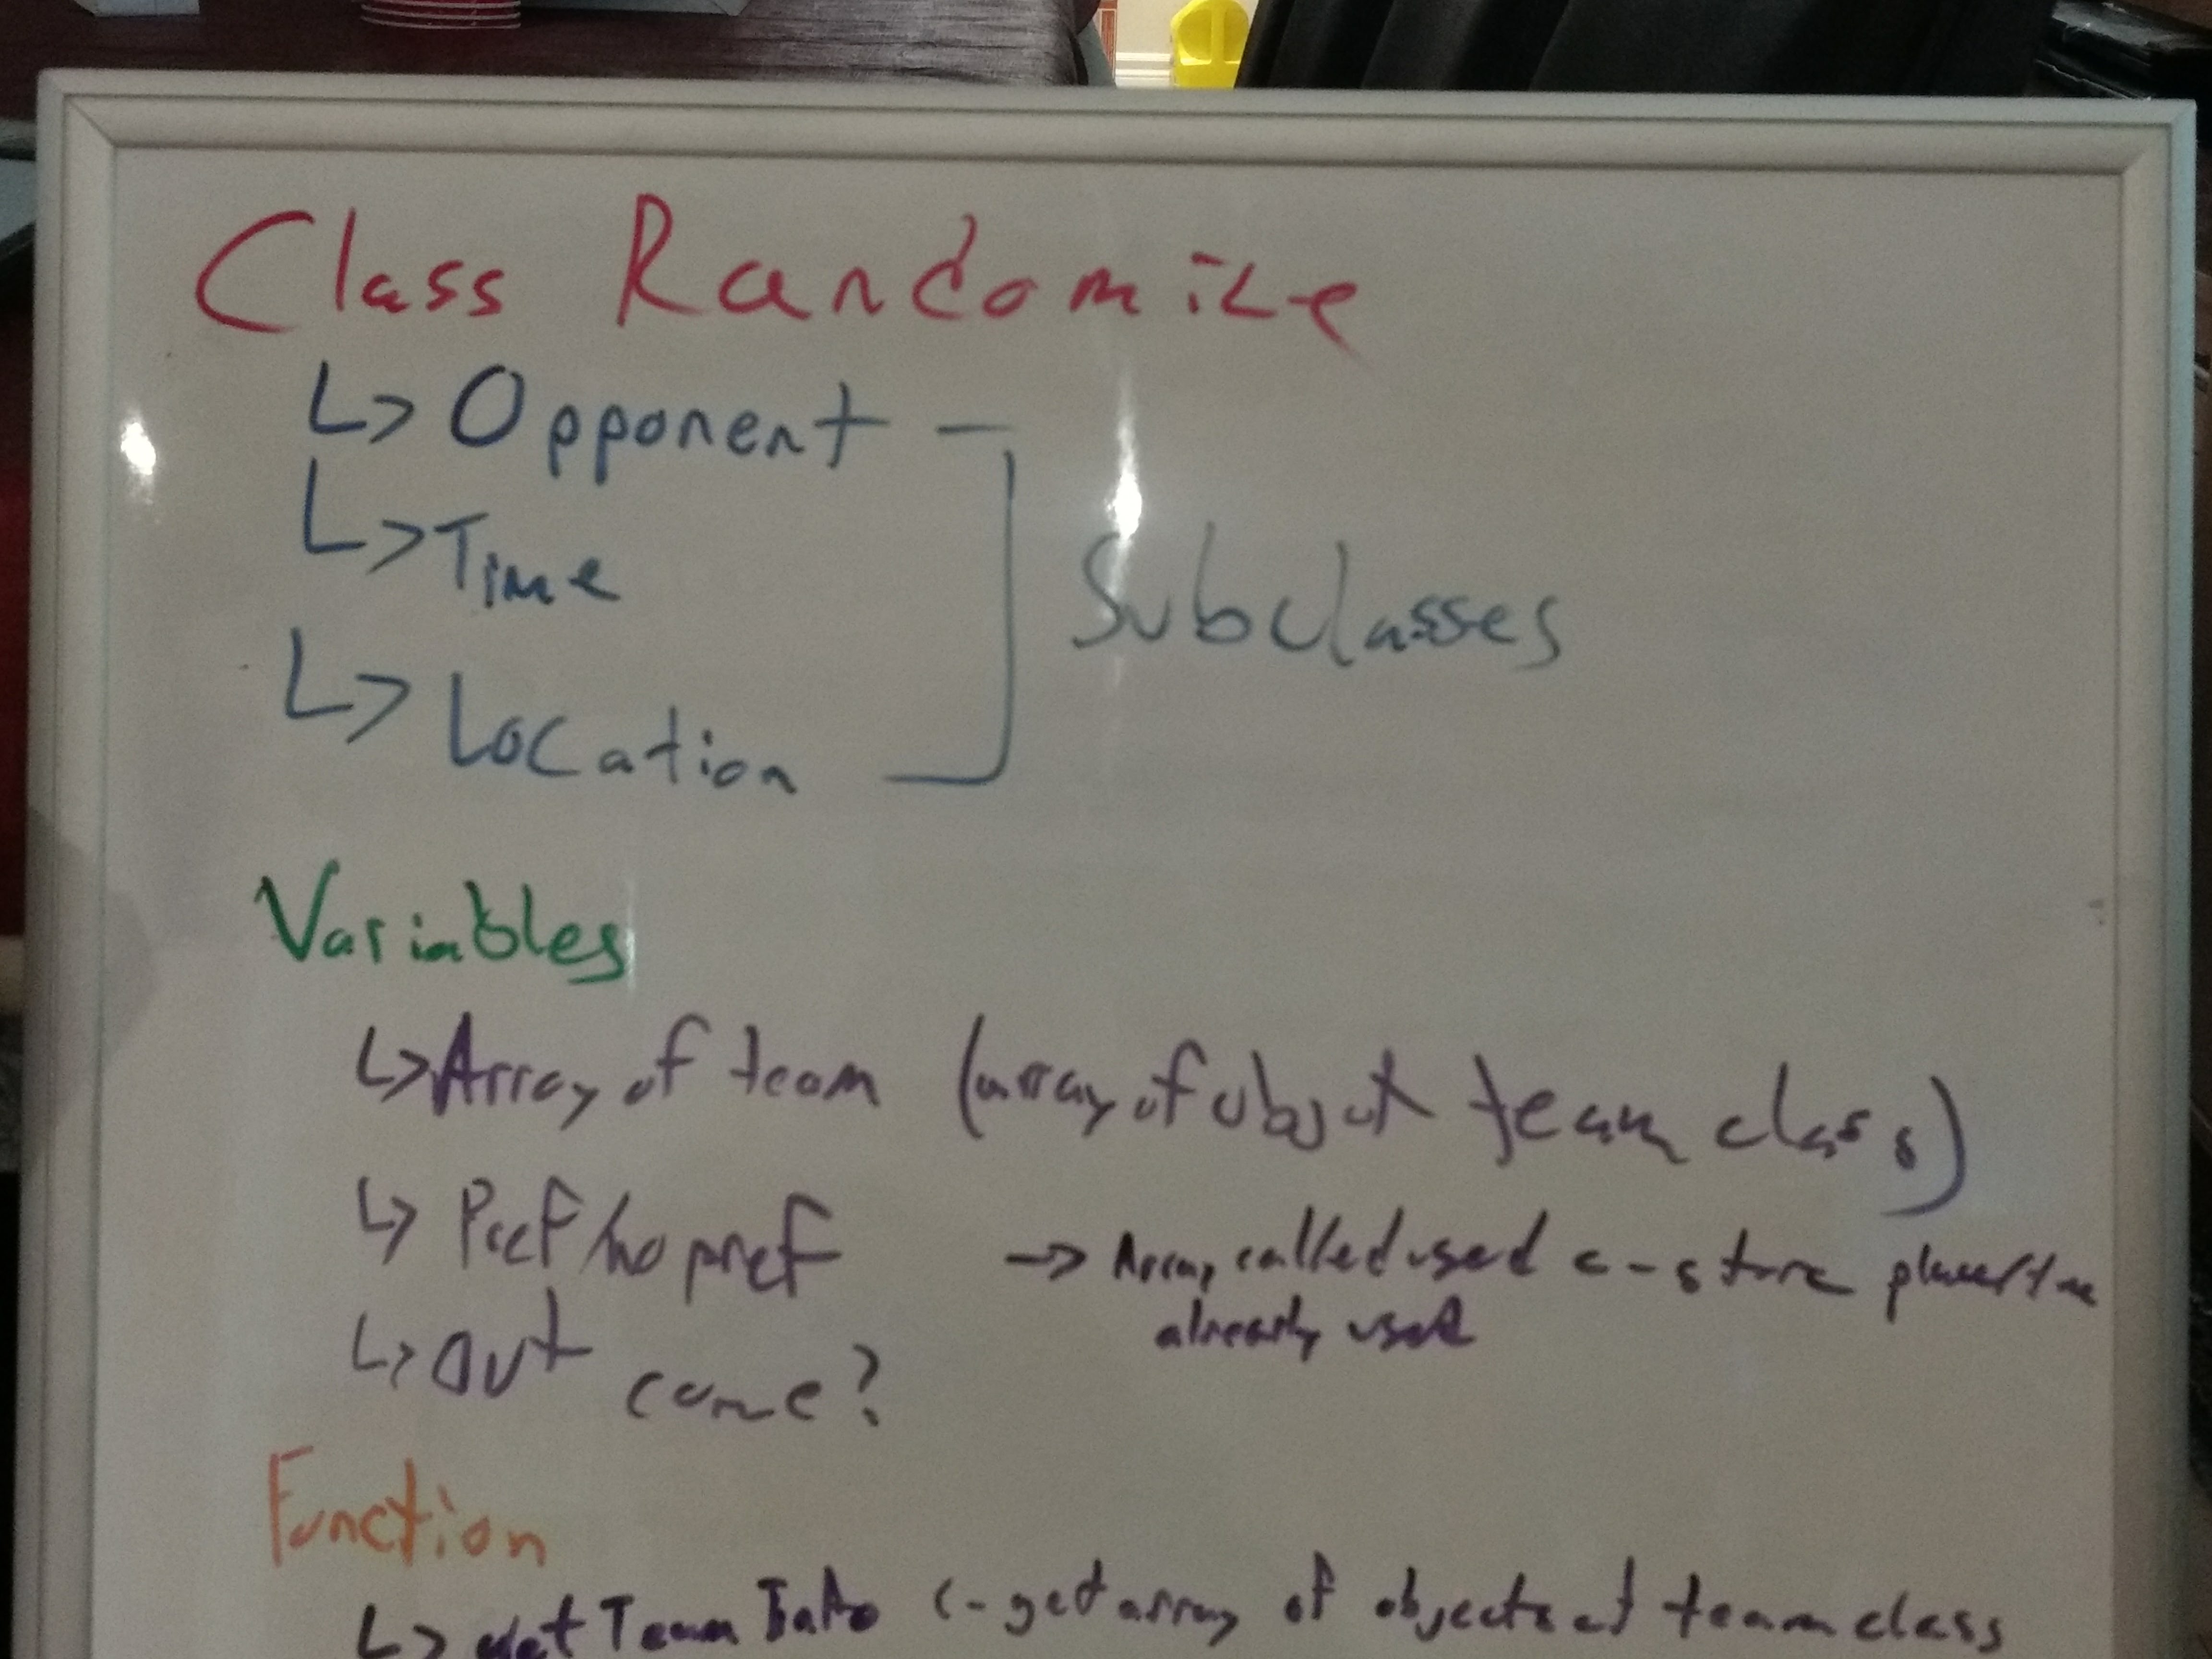 Class Randomize
↳ Opponent
↳ Time
↳ Location
Subclasses
Variables
↳ Array of team (array of object team class)
↳ Pref/no pref
→ Array called used <- store
already used
↳ Out come?
Function
↳ get Team Info <- get array of objects of team class